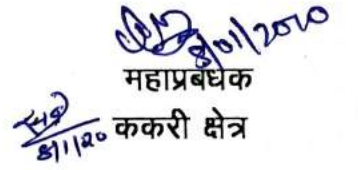 8/01/2020
महाप्रबंधक
8/1/20 ककरी क्षेत्र